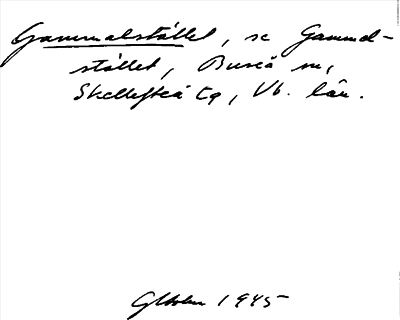 Gammalstället, se Gammel-
stället, Bureå sn,
Skellefteå tg, Vb. län.
1945